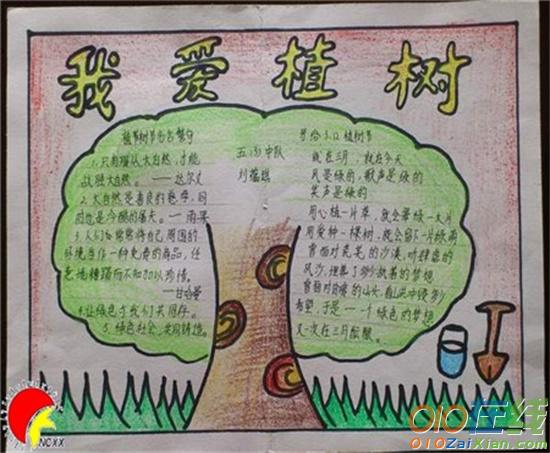 我爱植树
植树节名言警句
1.只有服从大自然,才能
战胜大自然。——达尔文
2.大自然是善良的慈母,同
时也是冷酷的屠夫。——雨果
3.人们常常将自己周围的
环境当作一种免费的商品,任
意地糟蹋而不知加以珍惜。
——甘哈曼
4.让绿色与我们共同存。
5.绿色社会,共同铸造。
五(3)中队
刘蕴琪
写给3.12植树节
就在三月,就在今天
风是绿的,歌声是绿的
笑声是绿的
用心植一片草,就会蓄绿一大片
用爱种一棵树,就会留下一片绿荫
曾面对荒芜的沙漠,听肆虐的
风沙,埋葬了多少执着的梦想
曾面对的山头,看山洪冲毁多少
希望,于是一个绿色的梦想
又一次在三月酝酿。
NCXX
010在线
010ZaiXian.com